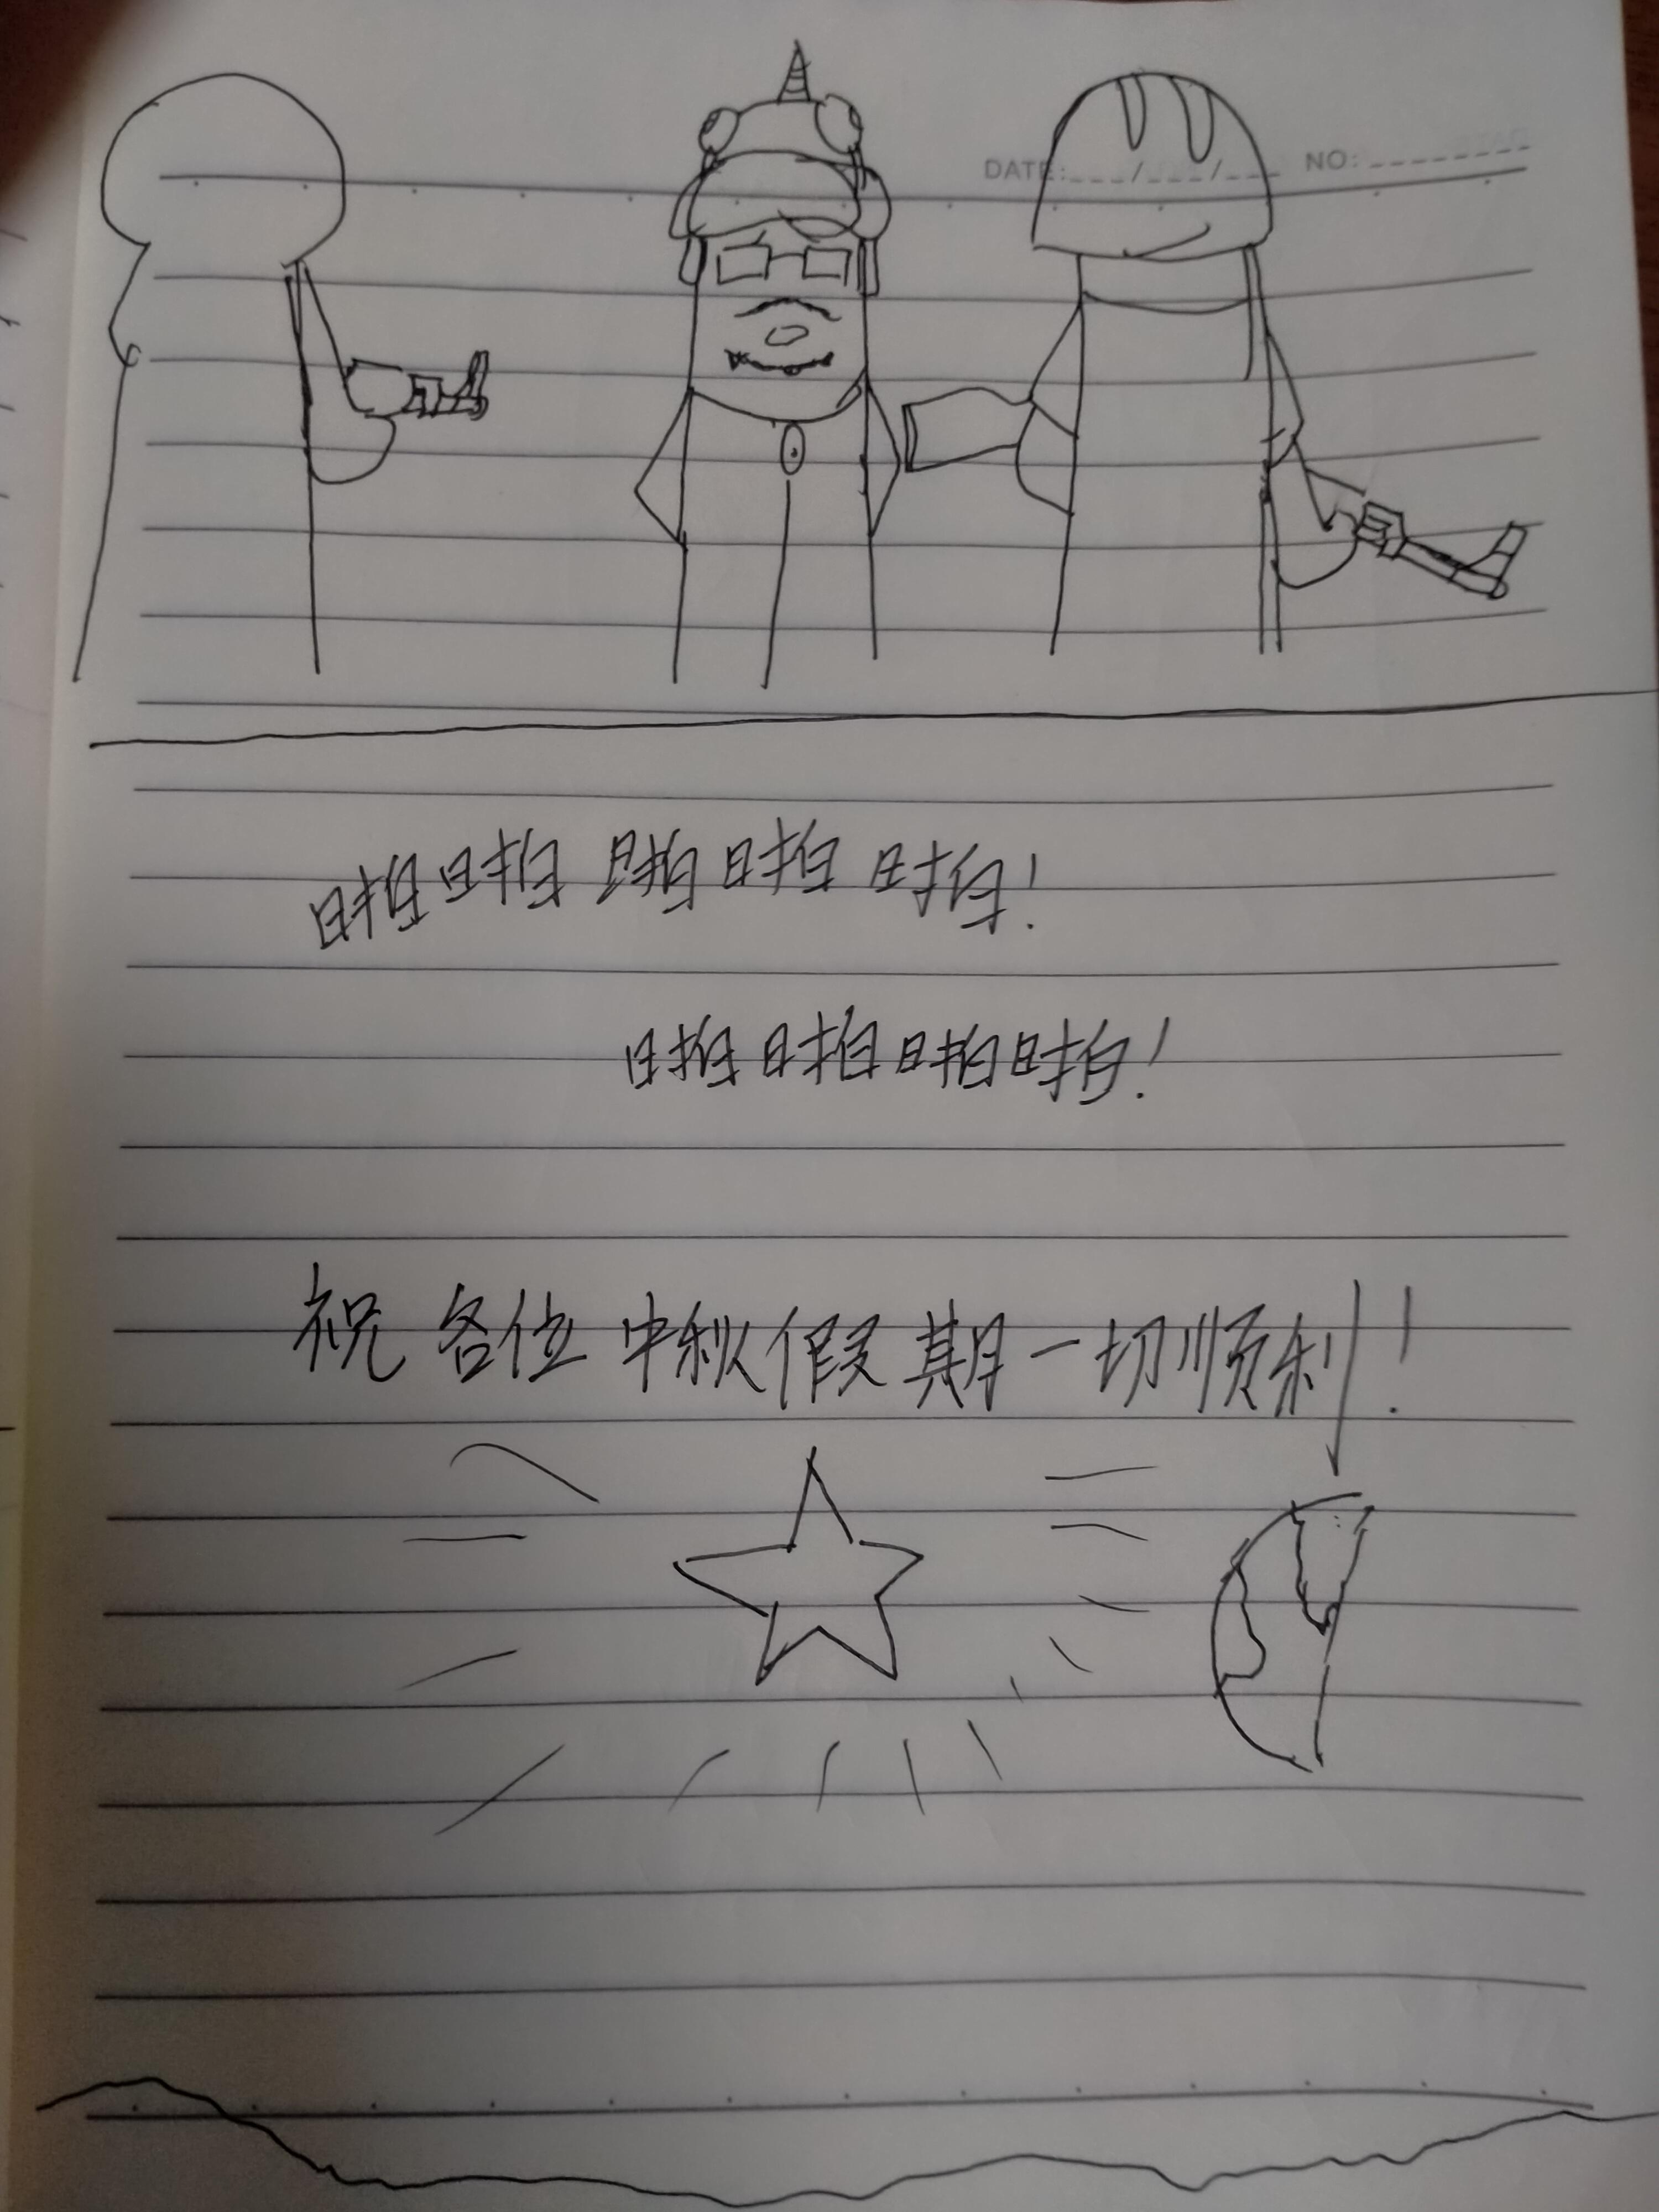 DATE:___/___/___ NO:________
啪啪啪啪啪!
啪啪啪啪!
祝各位中秋假期一切顺利!